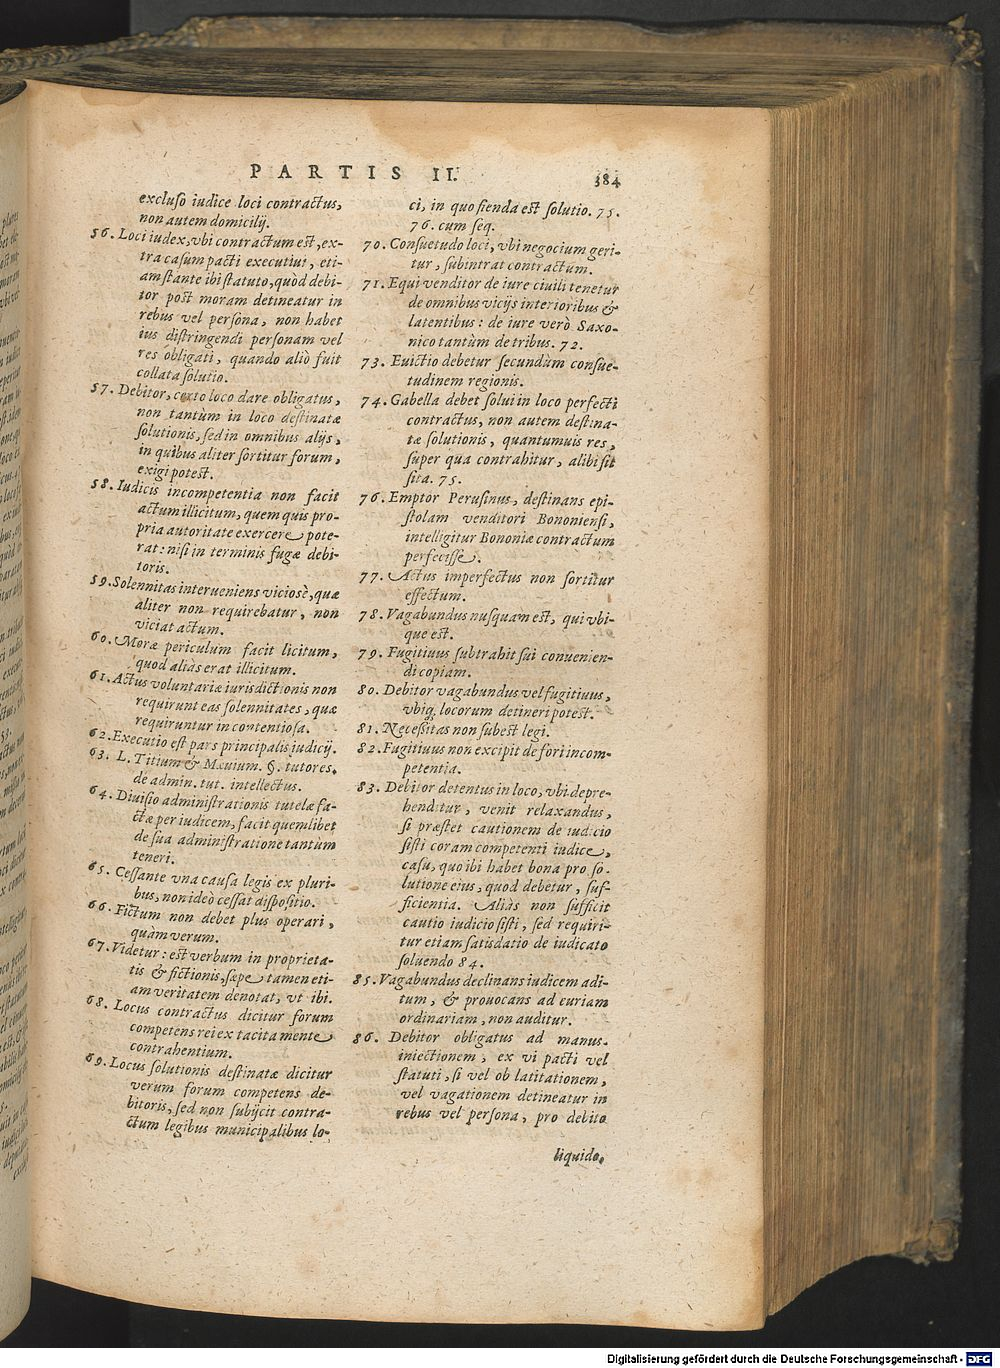 PARTIS II.
384
excluso iudice loci contractus,
non autem domicilij.
56. Loci iudex, vbi contractum est, ex-
tra casum pacti executiui, eti-
am stante ibi statuto, quòd debi-
tor post moram detineatur in
rebus vel persona, non habet
ius distringendi personam vel
res obligati, quando aliò fuit
collata solutio.
57. Debitor, certo loco dare obligatus,
non tantùm in loco destinatæ
solutionis, sed in omnibus alijs,
in quibus aliter sortitur forum,
exigi potest.
58. Iudicis incompetentia non facit
actum illicitum, quem quis pro-
pria autoritate exercere pote-
rat: nisi in terminis fugæ debi-
toris.
59. Solennitas interueniens viciosè, quæ
aliter non requirebatur, non
viciat actum.
60. Moræ periculum facit licitum,
quod aliàs erat illicitum.
61. Actus voluntariæ iurisdictionis non
requirunt eas solennitates, quæ
requiruntur in contentiosa.
62. Executio est pars principalis iudicij.
63. L. Titium & Mæuium. §. tutores.
de admin. tut. intellectus.
64. Diuisio administrationis tutelæ fa-
ctæ per iudicem, facit quemlibet
de sua administratione tantùm
teneri.
65. Cessante vna causa legis ex pluri-
bus, non ideò cessat dispositio.
66. Fictum non debet plus operari,
quàm verum.
67. Videtur: est verbum in proprieta-
tis & fictionis, sæpe tamen eti-
am veritatem denotat, vt ibi.
68. Locus contractus dicitur forum
competens rei ex tacita mente
contrahentium.
69. Locus solutionis destinatæ dicitur
verum forum competens de-
bitoris, sed non subijcit contra-
ctum legibus municipalibus lo-
ci, in quo fienda est solutio. 75.
76. cum seq.
70. Consuetudo loci, vbi negocium geri-
tur, subintrat contractum.
71. Equi venditor de iure ciuili tenetur
de omnibus vicijs interioribus &
latentibus: de iure verò Saxo-
nico tantùm de tribus. 72.
73. Euictio debetur secundùm consue-
tudinem regionis.
74. Gabella debet solui in loco perfecti
contractus, non autem destina-
tæ solutionis, quantumuis res,
super qua contrahitur, alibi sit
sita. 75.
76. Emptor Perusinus, destinans epi-
stolam venditori Bononiensi,
intelligitur Bononiæ contractum
perfecisse.
77. Actus imperfectus non sortitur
effectum.
78. Vagabundus nusquam est, qui vbi-
que est.
79. Fugitiuus subtrahit sui conuenien-
di copiam.
80. Debitor vagabundus vel fugitiuus,
vbiq; locorum detineri potest.
81. Necessitas non subest legi.
82. Fugitiuus non excipit de fori incom-
petentia.
83. Debitor detentus in loco, vbi depre-
henditur, venit relaxandus,
si præstet cautionem de iudicio
sisti coram competenti iudice,
casu, quo ibi habet bona pro so-
lutione eius, quod debetur, suf-
ficientia. Aliàs non sufficit
cautio iudicio sisti, sed requiri-
tur etiam satisdatio de iudicato
soluendo 84.
85. Vagabundus declinans iudicem adi-
tum, & prouocans ad curiam
ordinariam, non auditur.
86. Debitor obligatus ad manus-
iniectionem, ex vi pacti vel
statuti, si vel ob latitationem,
vel vagationem detineatur in
rebus vel persona, pro debito
liquido,
Digitalisierung gefördert durch die Deutsche Forschungsgemeinschaft - DFG